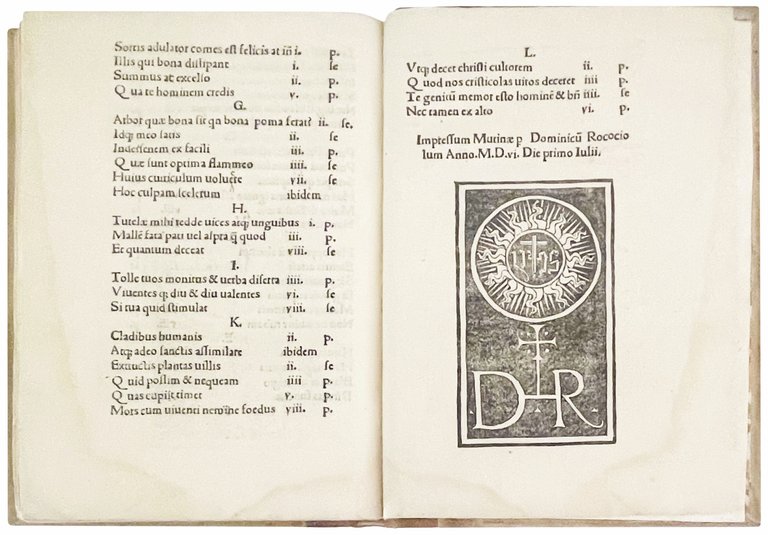 Sortis adulator comes est felicis at iñ i. p.
Illis qui bona dissipant i. se
Summus at excelso ii. p.
Qua te hominem credis v. p.
G.
Arbor quæ bona sit qn bona poma ferat? ii. se.
Idq; meo satis ii. se
Indefensem ex facili iii. p.
Quæ sunt optima flammeo iiii. se
Huius curriculum uoluere vii. se
Hoc culpam scelerum ibidem
H.
Tutelæ mihi redde uices atq; unguibus i. p.
Mallē fata pati uel aspra q̄ quod iii. p.
Et quantum deceat viii. se
I.
Tolle tuos monitus & uerba diserta iiii. p.
Viuentes q; diu & diu ualentes vi. se
Si tua quid stimulat viii. se
K.
Cladibus humanis ii. p.
Atq; adeo sanctis assimilare ibidem
Exructis plantas uillis ii. se
Quid possim & nequeam iiii p.
Quas cupiit timet v. p.
Mors cum uiuenti nemine foedus viii. p.
L.
Vtq; decet christi cultorem ii. p.
Quod nos cristicolas uiros deceret iiii p.
Te genitū memor esto hominē & bñ iiii. se
Nec tamen ex alto vi. p.
Impressum Mutinæ p Dominicū Rococio
lum Anno.M.D.vi. Die primo Iulii.
yhs
D R